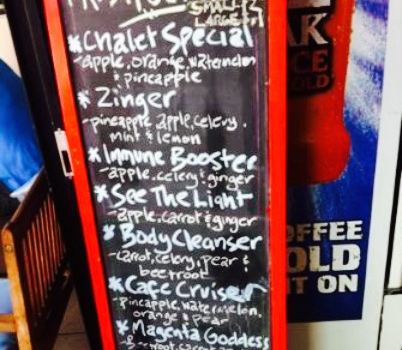 SMALL
LARGE
*Chalet Special
-apple, orange, watermelon
& pineapple
* Zinger
-pineapple, apple, celery,
mint & lemon
*Immune Booster
-apple, celery & ginger
*See The Light
-apple, carrot & ginger
*Body Cleanser
-carrot, celery, pear &
beetroot
*Cafe Cruiser
-pineapple, watermelon,
orange & pear
*Magenta Goddess
AK
ICE
OLD
OFFEE
OLD
IT ON